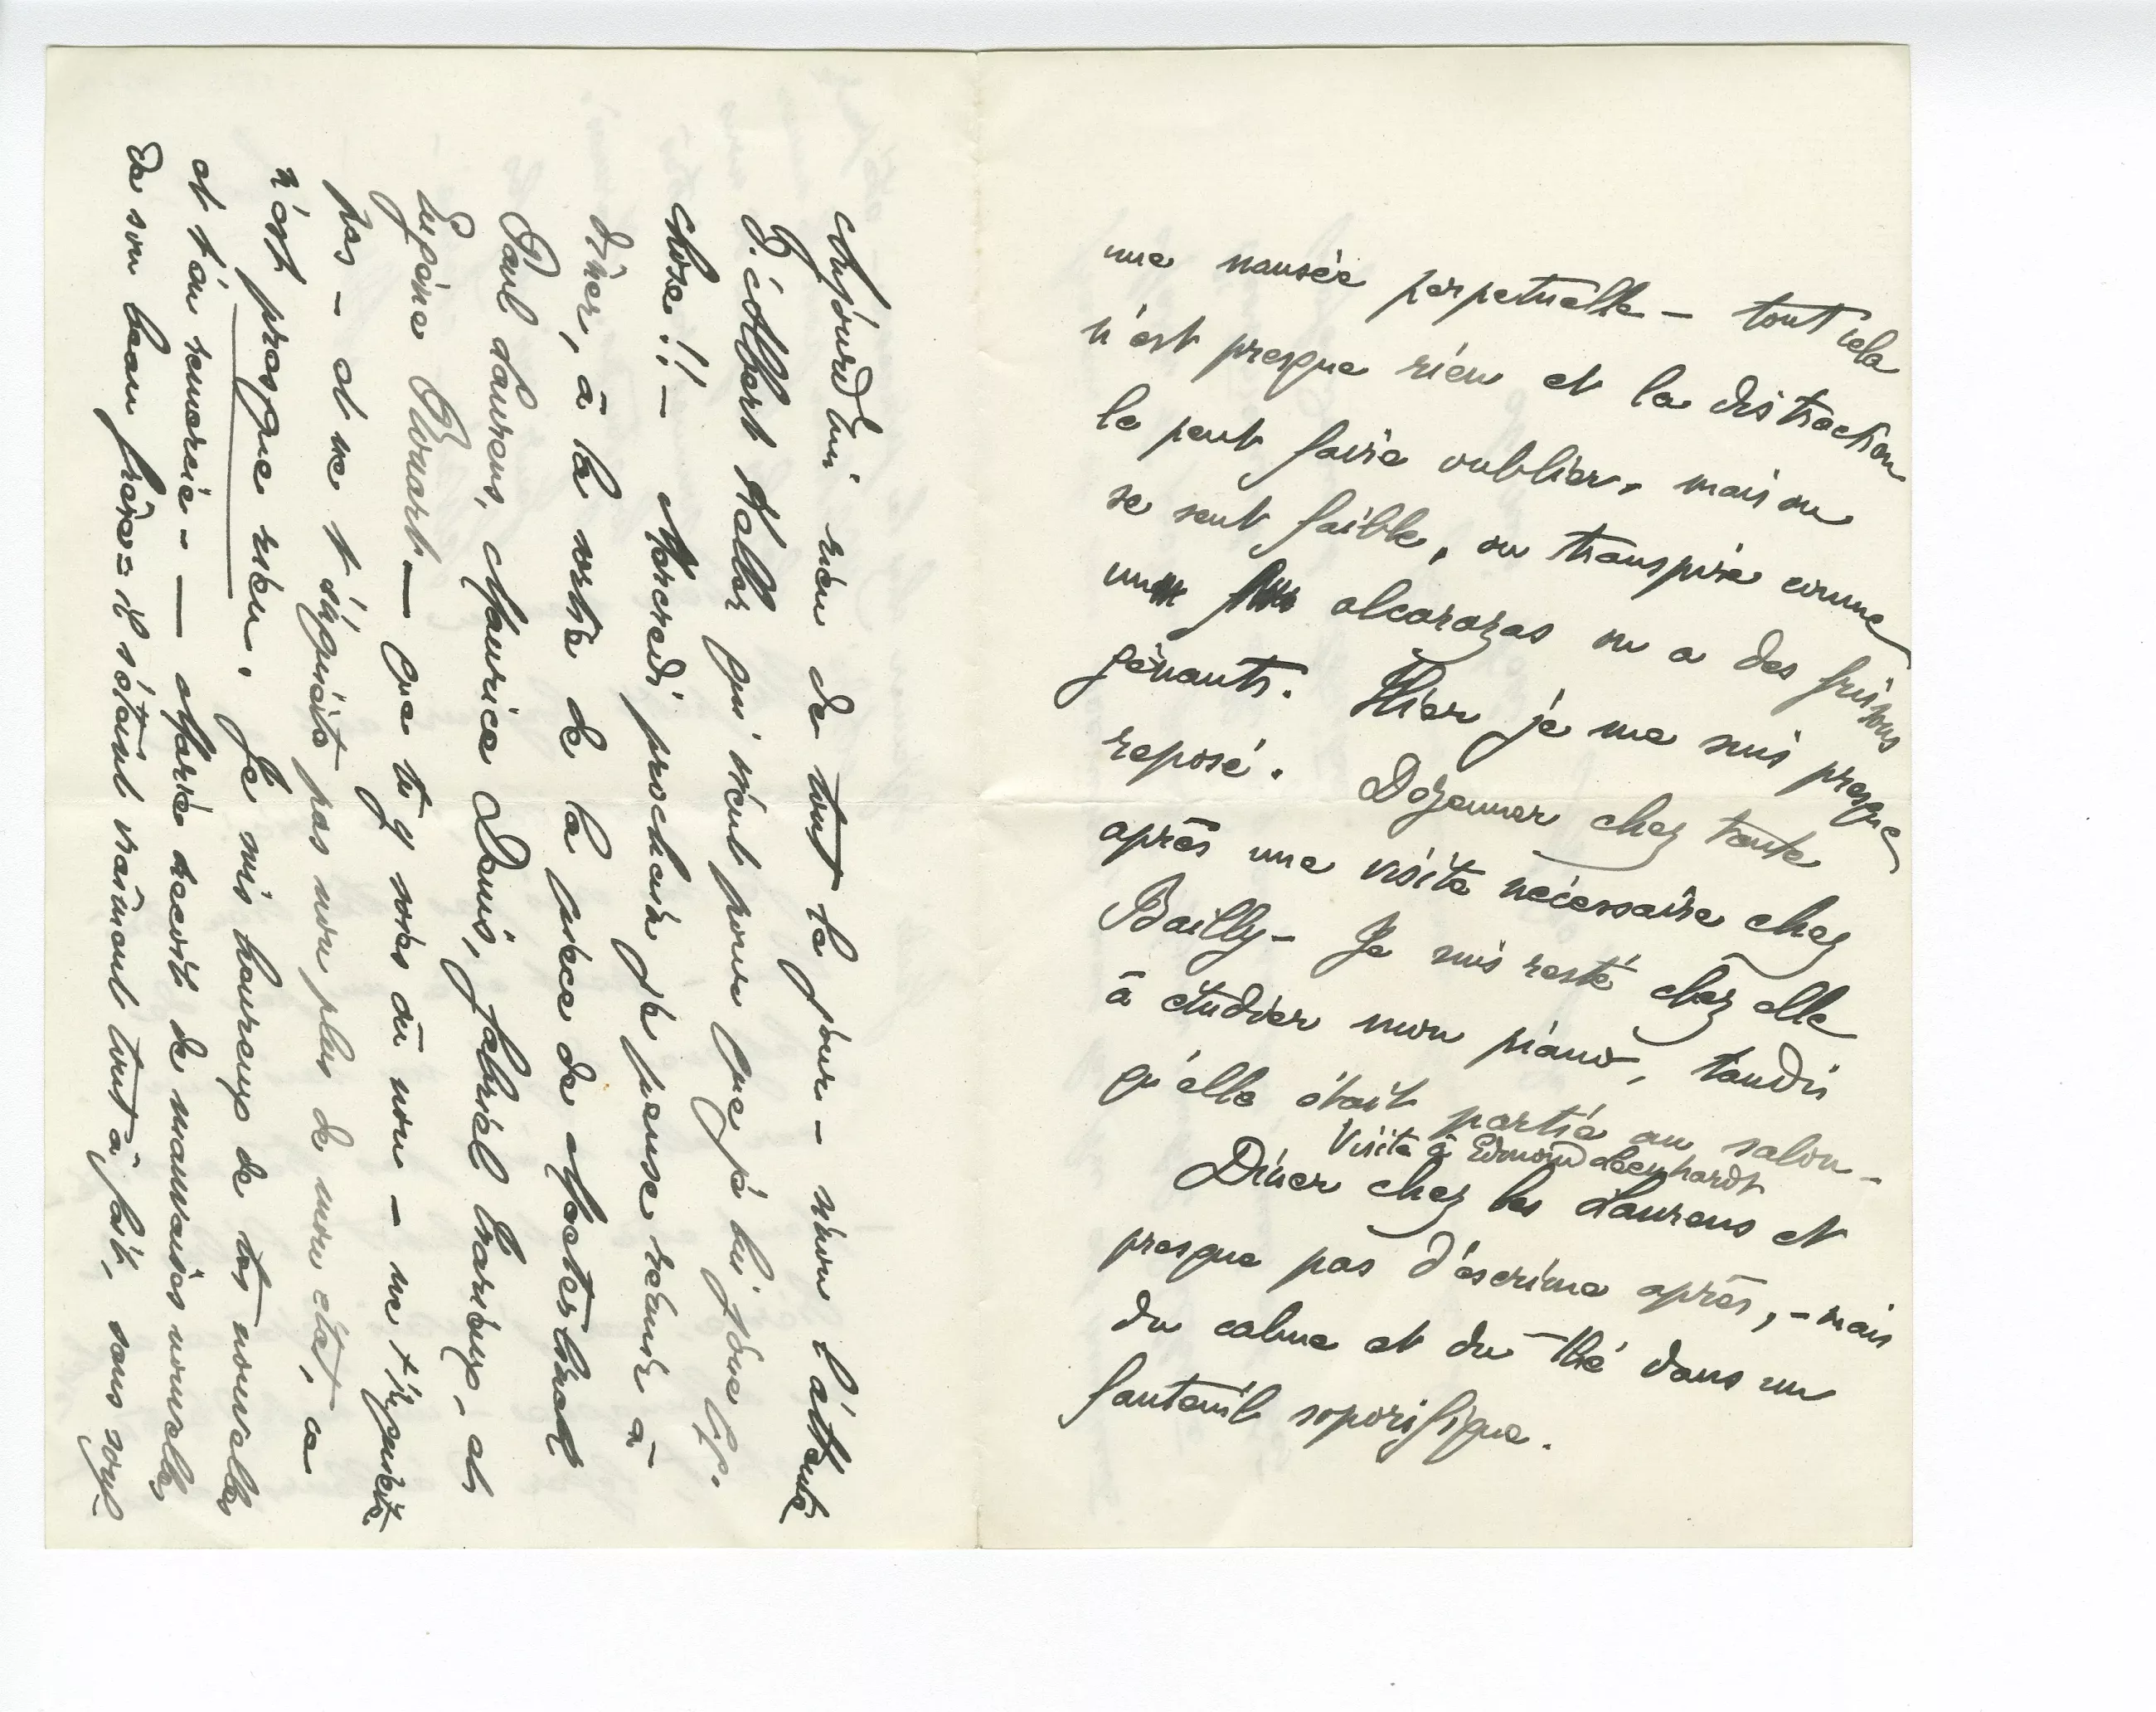 une nausée perpetuelle – tout cela
n'est presque rien et la distraction
le peut faire oublier, mais on
se sent faible, on transpire comme
un alcarazas on a des frissons
gênants. Hier je me suis presque
reposé. Dejeuner chez tante
après une visite nécessaire chez
Bailly – Je suis resté chez elle
à étudier mon piano, tandis
qu'elle était partie au salon –
Visite à Edmond Leenhardt
Dîner chez les Laurens et
presque pas d'éscrime après, – mais
du calme et du thé dans un
fauteuil soporifique.
Aujourd'hui rien de tout le jour – sinon l'attente
D'Albert Keller qui vient pour que je lui joue qq.
chose!! – Mercredi prochain je pense réunir à
dîner, à la sortie de la pièce de Maeterlinck
Paul Laurens, Maurice Denis, Gabriel Trarieux, et
Eugène Rouart – que tu y sois ou non – ne t'inquiète
pas – et ne t'inquiète pas non plus de mon état, ce
n'est presque rien. Je suis heureux de tes nouvelles
et t'en remercie – – Marie reçoit de mauvaises nouvelles
de son beau frère = il s'éteint vraiment tout à fait, sans